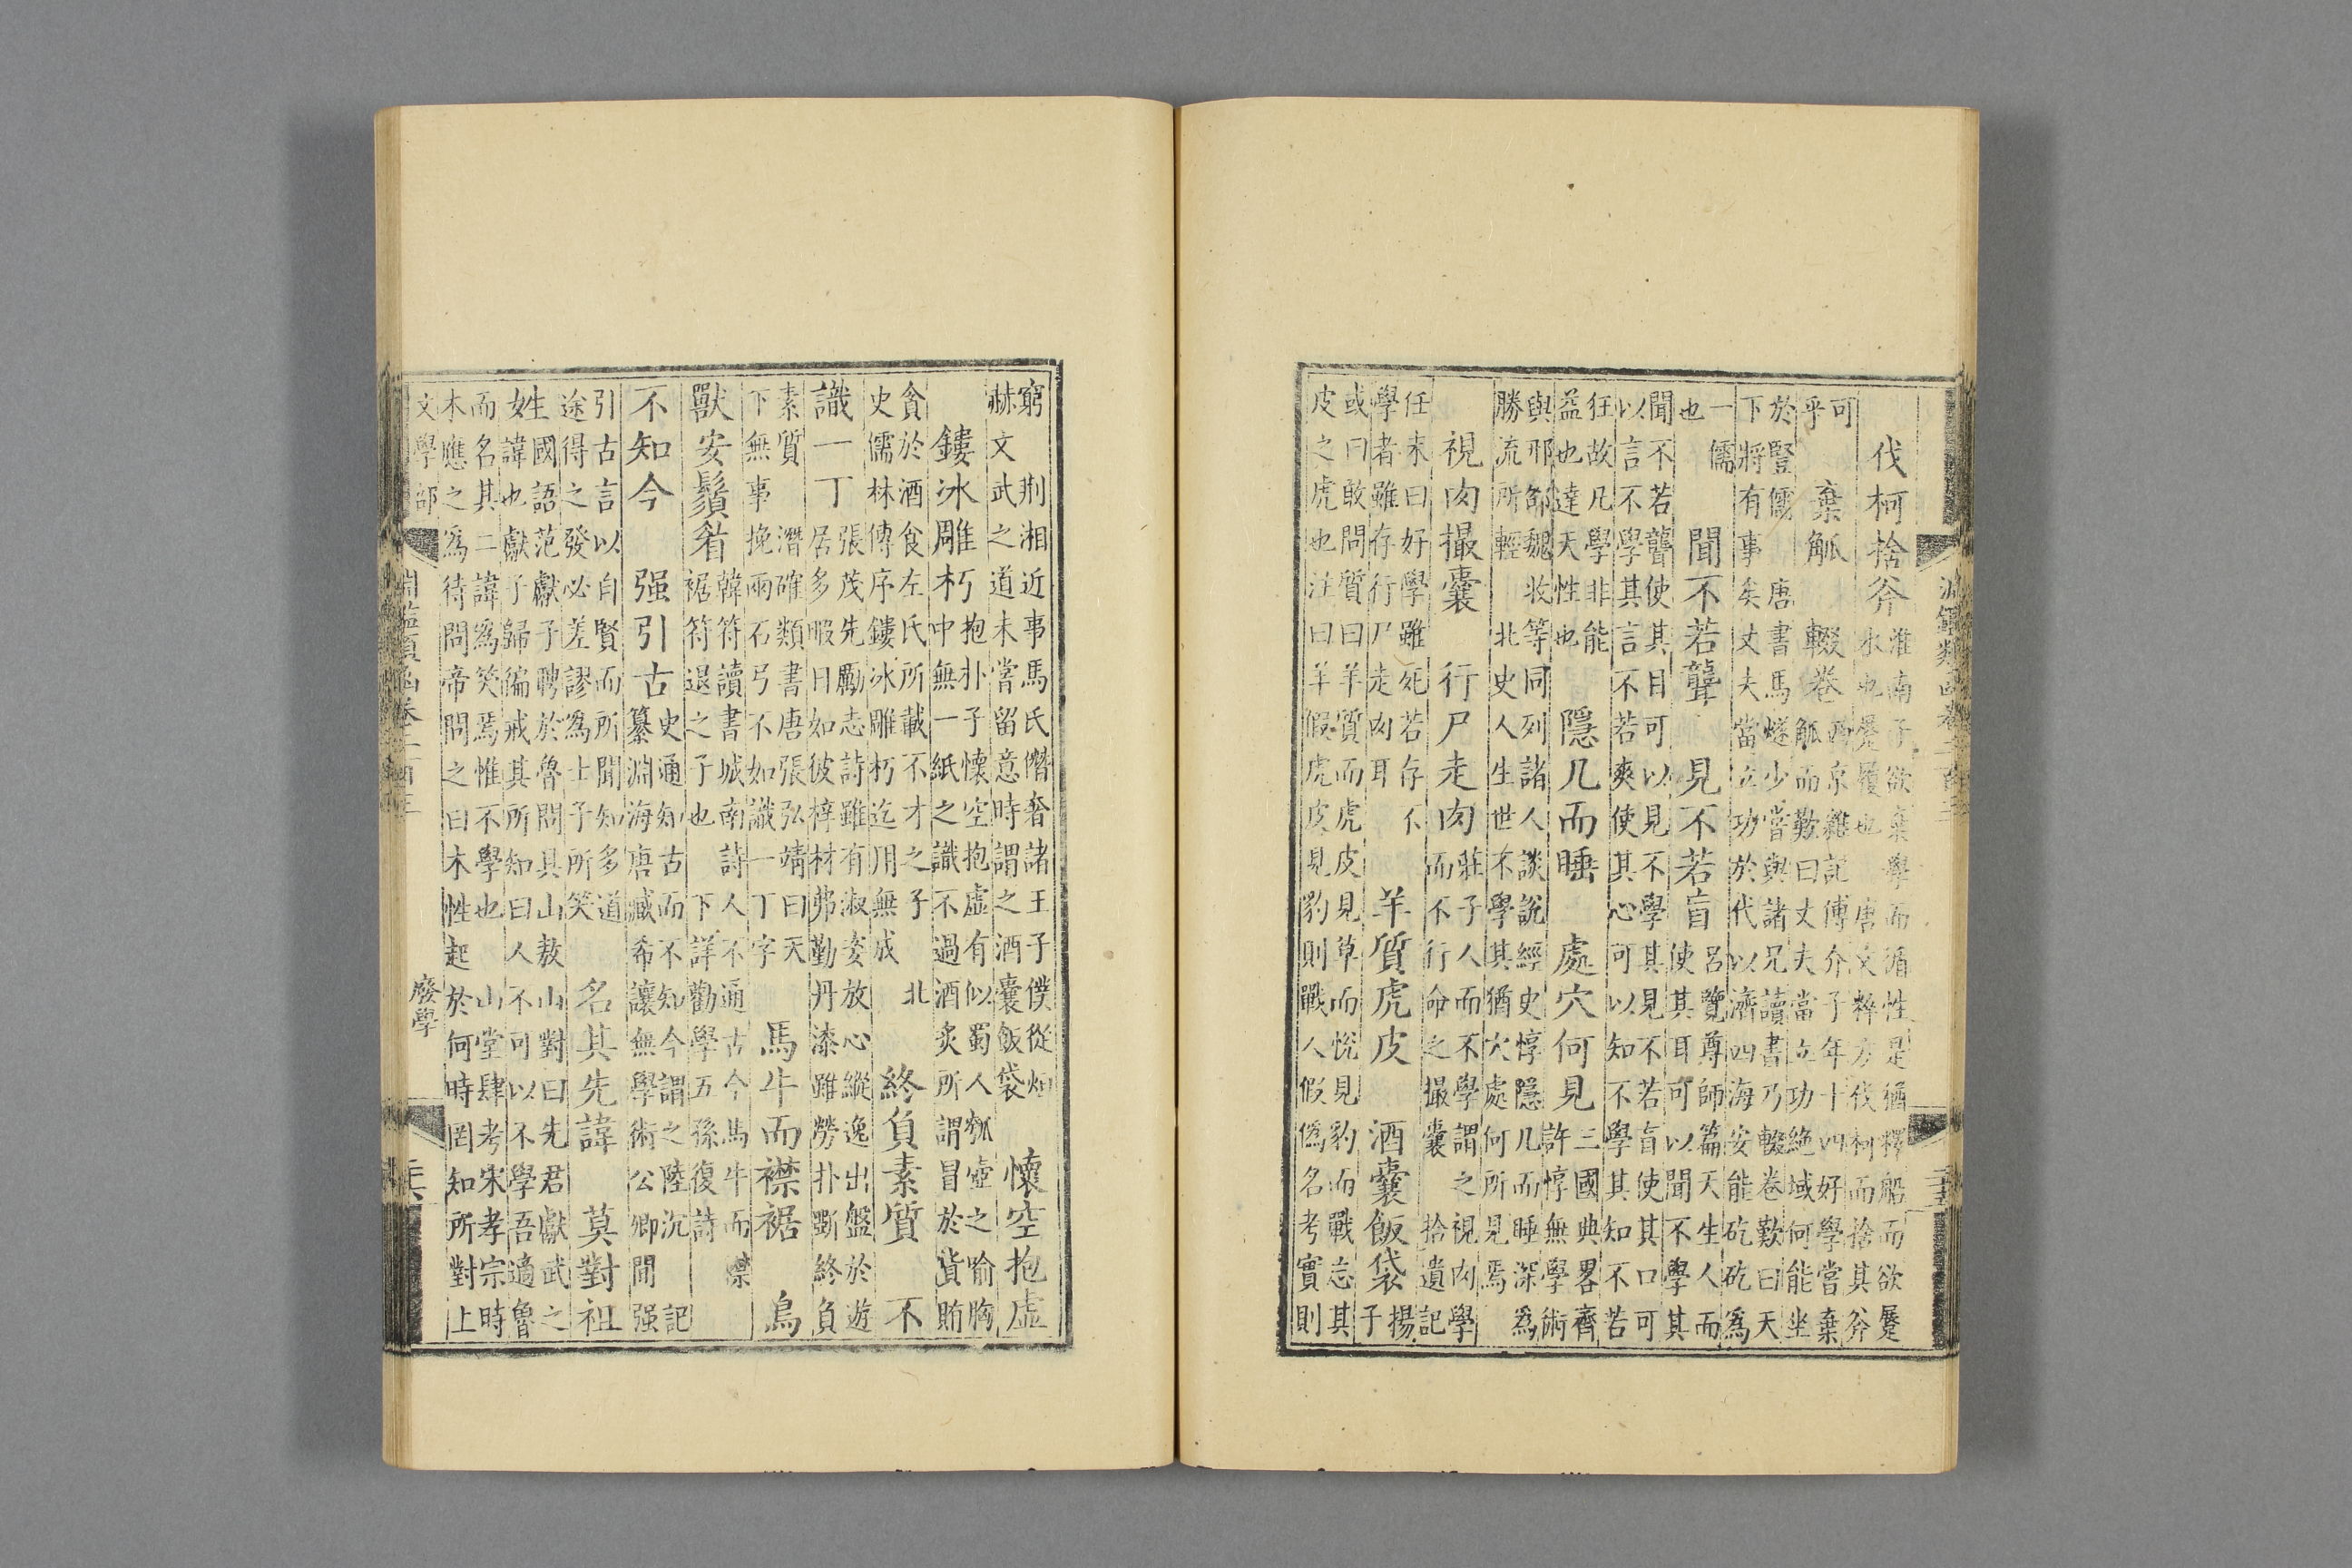 淵鑑類函卷二百三
伐柯捨斧
淮南子欲棄學而循性是猶釋船而欲蹷
水也蹷履也 唐文粹方伐柯而捨其斧
可
乎
棄觚 輟卷
西京雜記傅介子年十四好學嘗棄
觚而歎曰丈夫當立功絶域何能坐
於豎儒 唐書馬燧少嘗與諸兄讀書乃輟卷歎曰天
下將有事矣丈夫當立功於代以濟四海安能矻矻為
一儒
也
聞不若聾 見不若盲
呂覽尊師篇天生人而
使其耳可以聞不學其
聞不若聾使其目可以見不學其見不若盲使其口可
以言不學其言不若爽使其心可以知不學其知不若
狂故凡學非能
益也達天性也
隱几而睡 處穴何見
三國典畧齊
許惇無學術
與邢邵魏收等同列諸人談說經史惇隱几而睡深為
勝流所輕 北史人生世不學其猶穴處何所見焉
視肉撮囊 行尸走肉
莊子人而不學謂之視肉學
而不行命之撮囊 拾遺記
任末曰好學雖死若存不
學者雖存行尸走肉耳
羊質虎皮 酒囊飯袋
揚
子
或曰敢問質曰羊質而虎皮見草而悅見豹而戰忘其
皮之虎也注曰羊假虎皮見豹則戰人假偽名考實則
窮 荆湘近事馬氏僭奢諸王子僕從烜
赫文武之道未嘗留意時謂之酒囊飯袋
懷空抱虛
鏤冰雕朽
抱朴子懷空抱虛有似蜀人瓠壺之喻胸
中無一紙之識不過酒炙所謂冒於貨賄
貪於酒食左氏所載不才之子 北
史儒林傳序鏤冰雕朽迄用無成
終負素質 不
識一丁
張茂先勵志詩雖有淑姿放心縱逸出盤於遊
居多暇日如彼梓材弗勤丹漆雖勞朴斲終負
素質 潛確類書唐張弘靖曰天
下無事挽兩石弓不如識一丁字
馬牛而襟裾 鳥
獸安鬚眉
韓符讀書城南詩人不通古今馬牛而襟
裾符退之子也 下詳勸學五孫復詩
不知今 强引古
史通知古而不知今謂之陸沉 記
纂淵海唐臧希讓無學術公卿間强
引古言以自賢而所聞知多道
途得之發必差謬為士子所笑
名其先諱 莫對祖
姓
國語范獻子聘於魯問具山敖山對曰先君獻武之
諱也獻子歸徧戒其所知曰人不可以不學吾適魯
而名其二諱為笑焉惟不學也 山堂肆考宋孝宗時
木應之為待問帝問之曰木性起於何時罔知所對上
文學部
淵鑑類函卷二百三
廢學